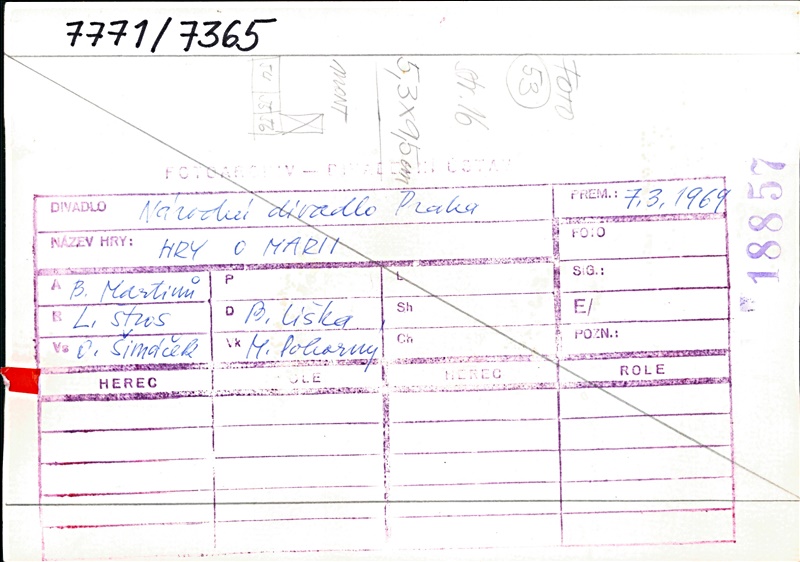 7771/7365
FOTO
53
str. 16
5,3x9,5cm
FOTOARCHIV – DIVADELNÍ ÚSTAV
DIVADLO Národní divadlo Praha PREM.: 7.3.1969
NÁZEV HRY: HRY O MARII FOTO
A B. Martinů P L SIG.:
R L. Štros D B. Liška Sh E/
Vs O. Šimáček Vk M. Pokorný Ch POZN.:
HEREC ROLE HEREC ROLE
18857